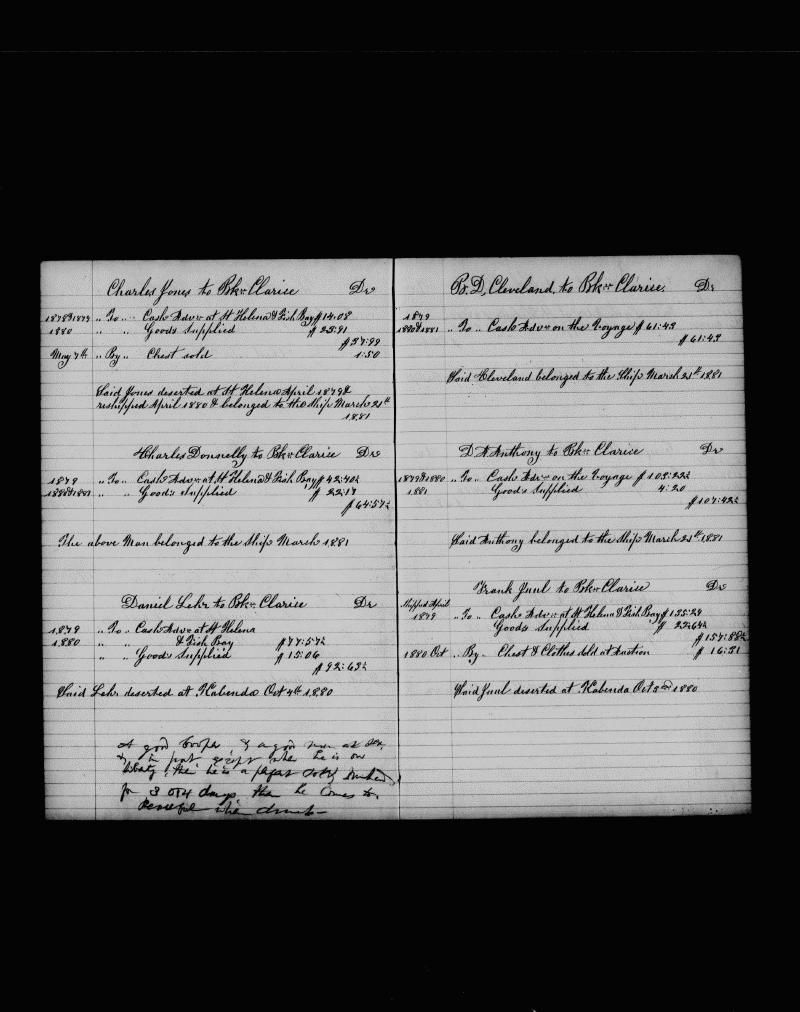 Charles Jones to Bkr Clarice Dr
1878&1879 " To " Cash Advr at St Helena & Fish Bay $14.08
1880 " " Goods Supplied $ 23:91
$37:99
May 7th " By " Chest sold 1:50
Said Jones deserted at St Helena April 1879 &
reshipped April 1880 & belonged to the Ship March 21st
1881
Charles Donnelly to Bkr Clarice Dr
1879 " To " Cash Advr at St Helena & Fish Bay $42:40
1880&1881 " " Goods Supplied $ 22:17
$64:57
The above Man belonged to the Ship March 1881
Daniel Lehr to Bkr Clarice Dr
1879 " To " Cash Advr at St Helena
1880 " " & Fish Bay $77:57
" " Goods Supplied $15:06
$92:63
Said Lehr deserted at Kabenda Oct 4th 1880
A good Cooper, & a good man at sea,
& in port, except when he is on
liberty, then he is a perfect
for 3 or 4 days, then he comes to,
when drunk -
B. D. Cleveland, to Bkr Clarice. Dr
1879
1880&1881 " To " Cash Advr on the Voyage $61:43
$61:43
Said Cleveland belonged to the Ship March 21st 1881
D A Anthony to Bkr Clarice Dr
1879&1880 " To " Cash Advr on the Voyage $103:22
1881 Goods Supplied 4:20
$107:42
Said Anthony belonged to the Ship March 21st 1881
Frank Juul to Bkr Clarice Dr
Shipped April
1879 " To " Cash Advr at St Helena & Fish Bay $135:23
Goods Supplied $ 22:64
$157:88
1880 Oct " By " Chest & Clothes sold at Auction $ 16:31
Said Juul deserted at Kabenda Oct 3rd 1880